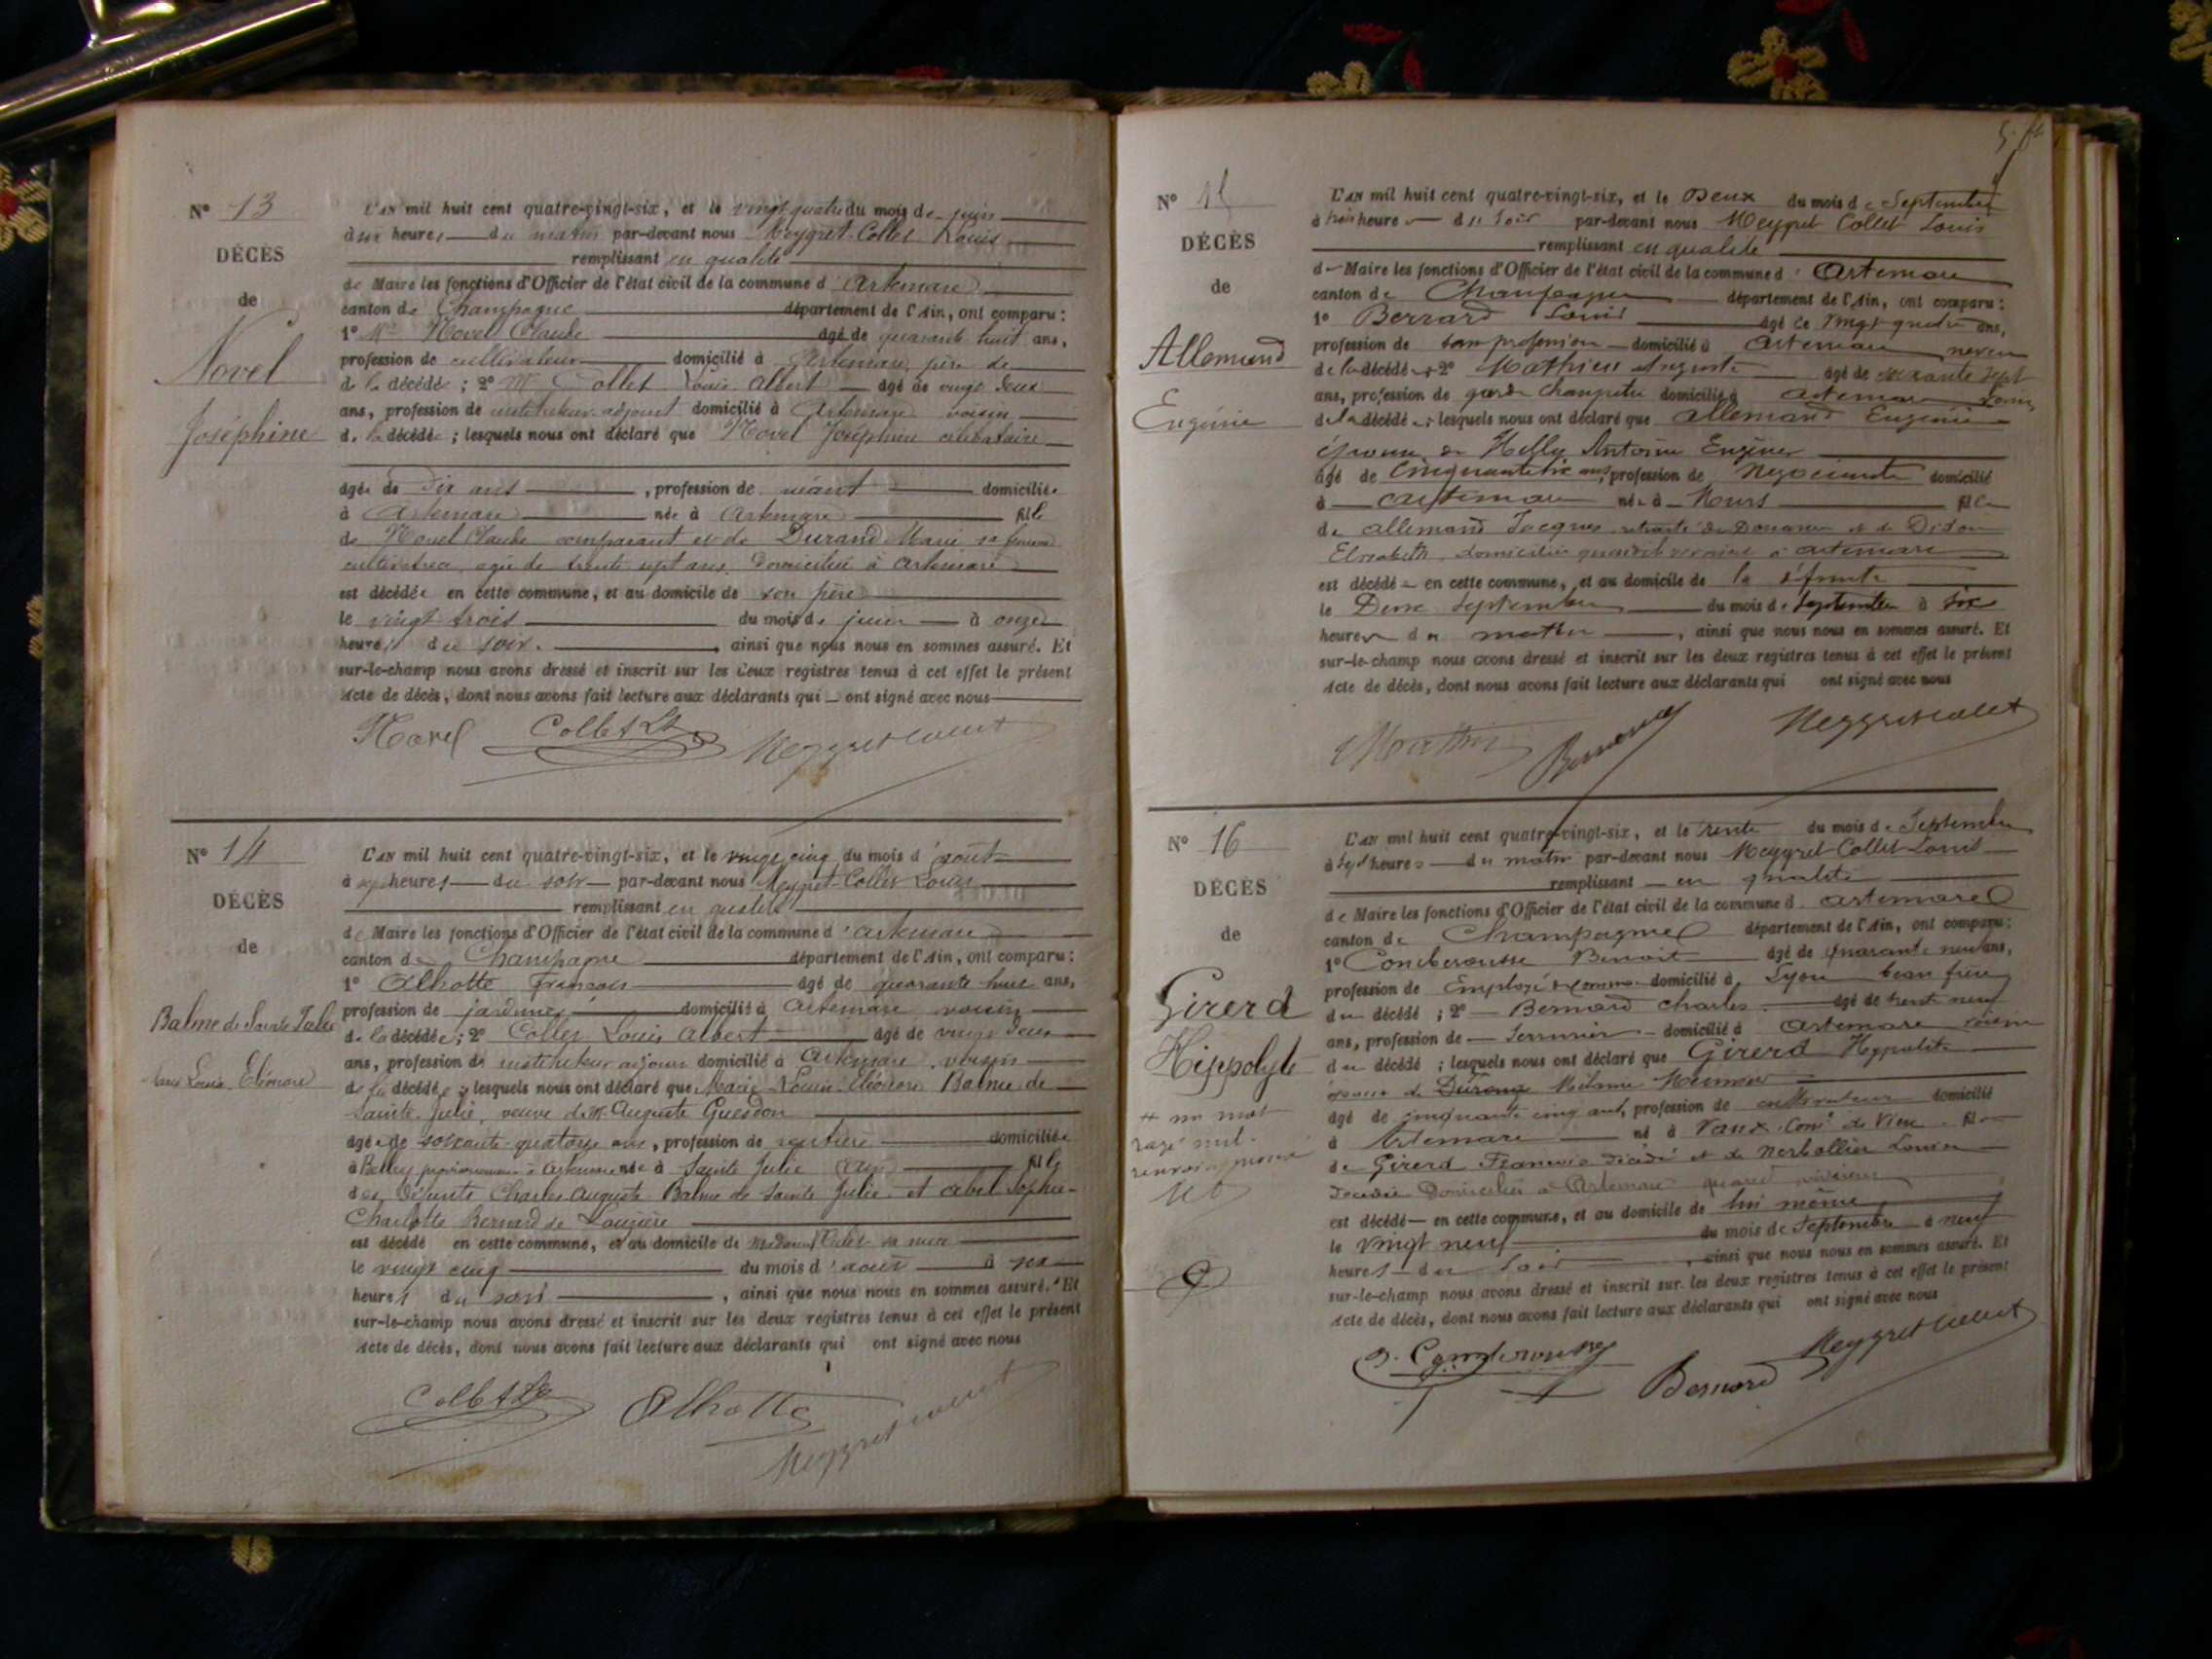 N° 13
DÉCÈS
de
Novel
Joséphine
L'AN mil huit cent quatre-vingt-six, et le vingt quatre du mois de juin
à six heures du matin par-devant nous Meygret-Collet Louis
remplissant en qualité
de Maire les fonctions d'Officier de l'état civil de la commune d'Artemare
canton de Champagne département de l'Ain, ont comparu :
1° Mr Novel Claude âgé de quarante huit ans,
profession de cultivateur domicilié à Artemare père de
de la décédée ; 2° Mr Collet Louis Albert âgé de vingt deux
ans, profession de instituteur adjoint domicilié à Artemare voisin
de la décédée ; lesquels nous ont déclaré que Novel Joséphine célibataire
âgée de Dix ans , profession de néant domiciliée
à Artemare née à Artemare fille
de Novel Claude comparant et de Durand Marie sa femme
cultivatrice agée de trente sept ans, domiciliée à Artemare
est décédée en cette commune, et au domicile de son père
le vingt trois du mois de juin à onze
heures du soir. , ainsi que nous nous en sommes assuré. Et
sur-le-champ nous avons dressé et inscrit sur les deux registres tenus à cet effet le présent
Acte de décès, dont nous avons fait lecture aux déclarants qui ont signé avec nous
Novel Collet Meygret Collet
N° 14
DÉCÈS
de
Balme de Sainte Julie
Marie Louise Eléonore
L'AN mil huit cent quatre-vingt-six, et le vingt cinq du mois d'août
à sept heures du soir par-devant nous Meygret-Collet Louis
remplissant en qualité
de Maire les fonctions d'Officier de l'état civil de la commune d'Artemare
canton de Champagne département de l'Ain, ont comparu :
1° Alhotte François âgé de quarante huit ans,
profession de jardinier domicilié à Artemare voisin
de la décédée ; 2° Collet Louis Albert âgé de vingt deux
ans, profession de instituteur adjoint domicilié à Artemare voisin
de la décédée ; lesquels nous ont déclaré que Marie Louise Eléonore Balme de
Sainte Julie, veuve de Mr Auguste Guesdon
âgée de soixante-quatorze ans, profession de rentière domiciliée
à Belley à Artemare née à Sainte Julie (Ain) fille
des défunts Charles Auguste Balme de Sainte Julie et Sophie-
Charlotte Bernard de Lauzière
est décédé en cette commune, et au domicile de Madame
le vingt cinq du mois d'août à six
heures du soir , ainsi que nous nous en sommes assuré. Et
sur-le-champ nous avons dressé et inscrit sur les deux registres tenus à cet effet le présent
Acte de décès, dont nous avons fait lecture aux déclarants qui ont signé avec nous
Collet Alhotte Meygret Collet
N° 15
DÉCÈS
de
Allemand
Eugénie
L'AN mil huit cent quatre-vingt-six, et le Deux du mois de Septembre
à trois heures du soir par-devant nous Meygret Collet Louis
remplissant en qualité
de Maire les fonctions d'Officier de l'état civil de la commune d'Artemare
canton de Champagne département de l'Ain, ont comparu :
1° Berrard Louis âgé de vingt quatre ans,
profession de sans profession domicilié à Artemare neveu
de la décédée ; 2° Mathieu Auguste âgé de sept
ans, profession de garde champêtre domicilié à Artemare
de la décédée ; lesquels nous ont déclaré que Allemand Eugénie
épouse de Antoine Eugène
âgé de cinquante six ans, profession de Négociante domicilié
à Artemare née à fille
de Allemand Jacques retraité des Douanes et de
Elisabeth domiciliés quand vivaient à Artemare
est décédé en cette commune, et au domicile de la défunte
le Deux Septembre du mois de Septembre à six
heures du matin , ainsi que nous nous en sommes assuré. Et
sur-le-champ nous avons dressé et inscrit sur les deux registres tenus à cet effet le présent
Acte de décès, dont nous avons fait lecture aux déclarants qui ont signé avec nous
Mathieu Berrard Meygret Collet
N° 16
DÉCÈS
de
Girerd
Hippolyte
+ un mot
rayé nul.
L'AN mil huit cent quatre-vingt-six, et le trente du mois de Septembre
à sept heures du matin par-devant nous Meygret-Collet Louis
remplissant en qualité
de Maire les fonctions d'Officier de l'état civil de la commune d'Artemare
canton de Champagne département de l'Ain, ont comparu :
1° Comberousse Benoit âgé de quarante neuf ans,
profession de Employé domicilié à Lyon beau frère
du décédé ; 2° Bernard Charles âgé de trente neuf
ans, profession de Serrurier domicilié à Artemare voisin
du décédé ; lesquels nous ont déclaré que Girerd Hyppolite
époux de Mélanie
âgé de cinquante cinq ans, profession de cultivateur domicilié
à Artemare né à Vaux Com. de Vieu fils
de Girerd François décédé et de Louise
décédée Domiciliés à Artemare quand
est décédé en cette commune, et au domicile de lui même
le vingt neuf du mois de Septembre à neuf
heures du soir , ainsi que nous nous en sommes assuré. Et
sur-le-champ nous avons dressé et inscrit sur les deux registres tenus à cet effet le présent
Acte de décès, dont nous avons fait lecture aux déclarants qui ont signé avec nous
Comberousse Bernard Meygret Collet